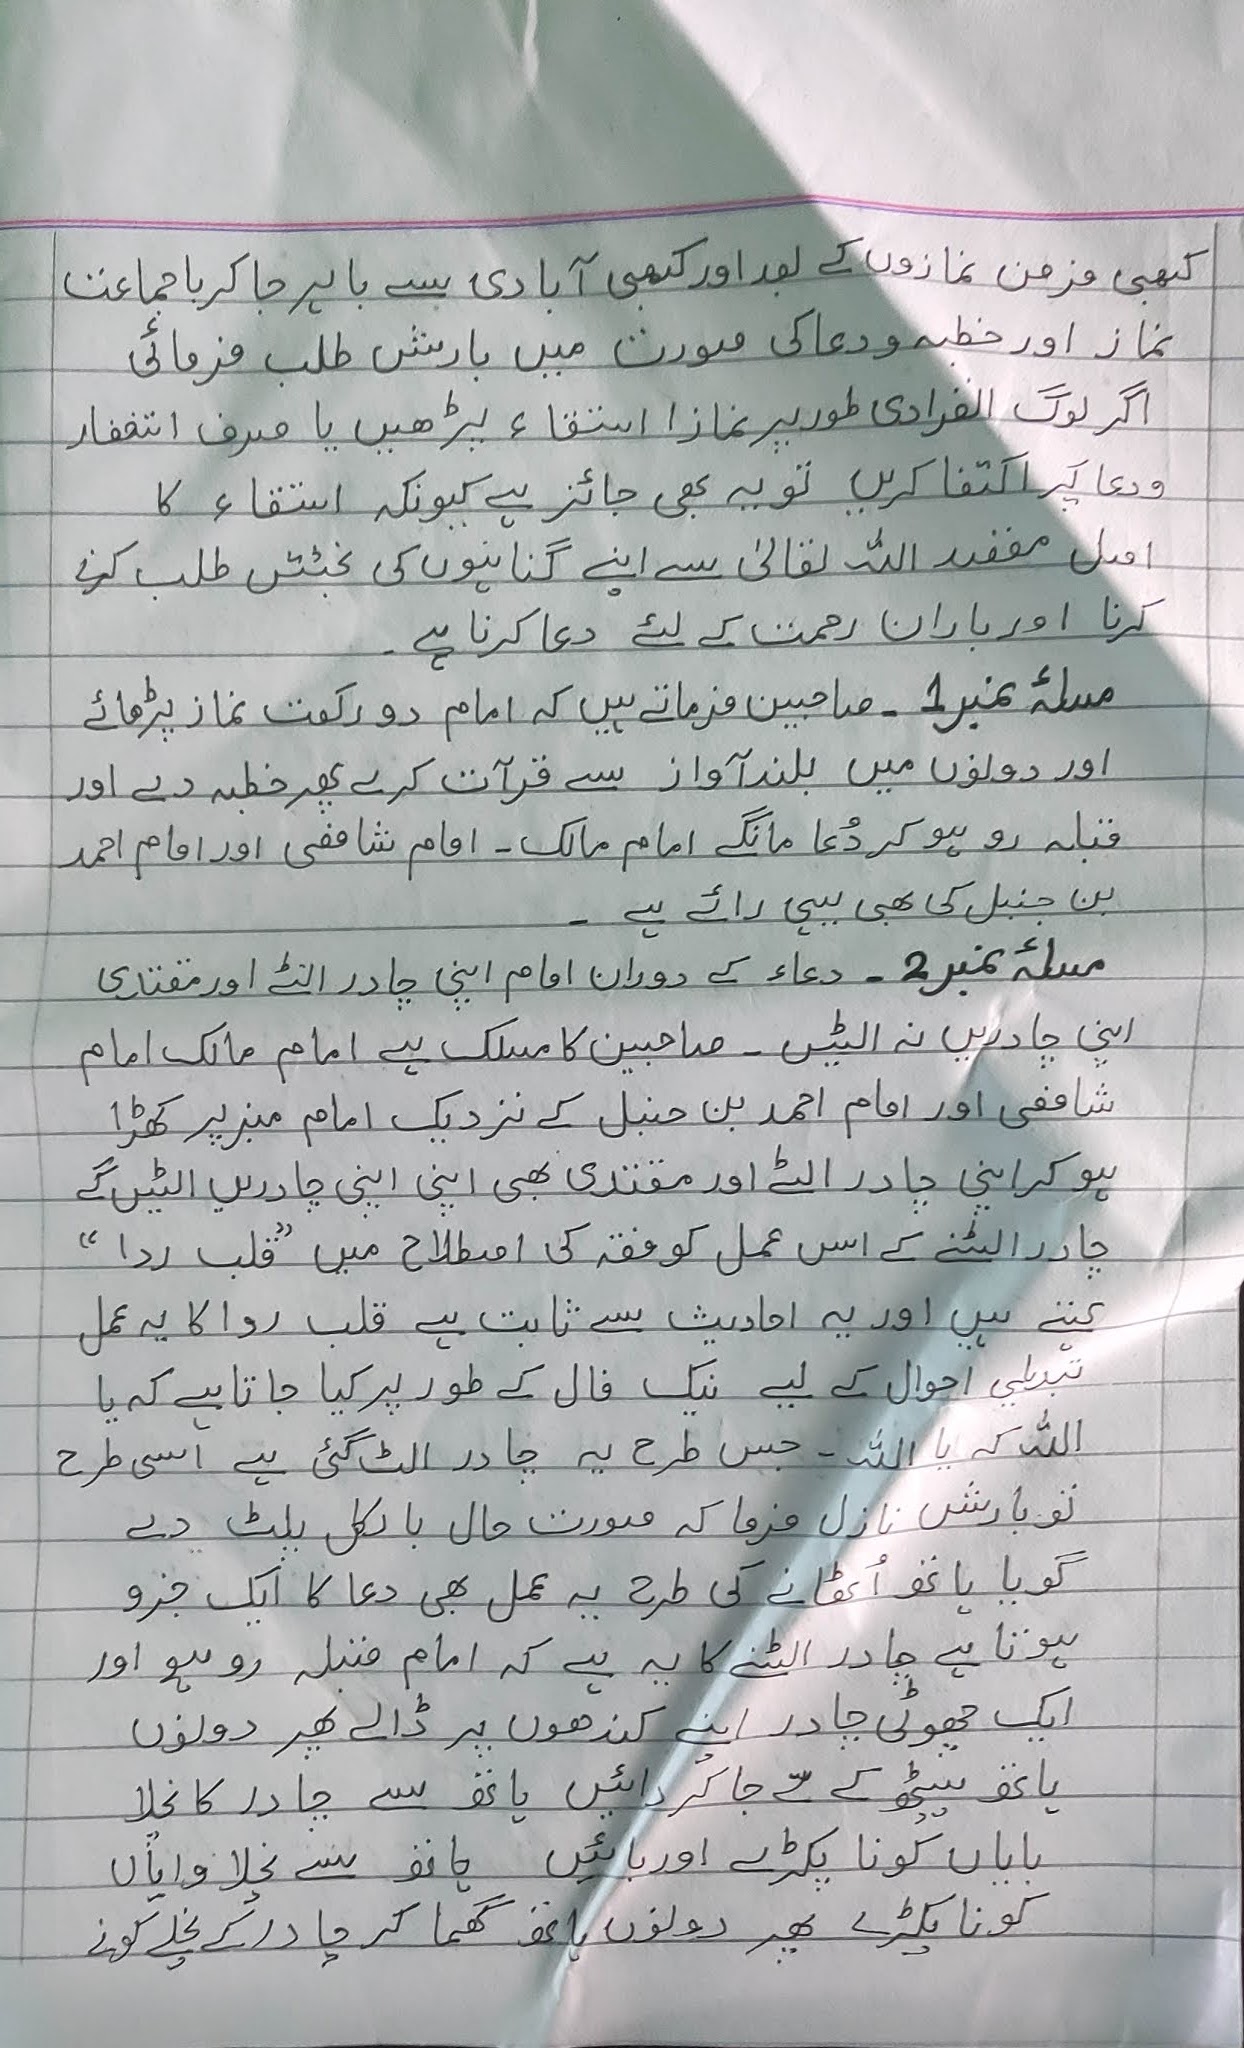 کبھی فرض نمازوں کے بعد اور کبھی آبادی سے باہر جا کر باجماعت
نماز اور خطبہ و دعا کی صورت میں بارش طلب فرمائی
اگر لوگ انفرادی طور پر نماز استقاء پڑھیں یا صرف اتغفار
و دعا پر اکتفا کریں تو یہ بھی جائز ہے کیونکہ استقاء کا
اصل مقصد اللہ تعالیٰ سے اپنے گناہوں کی بخشش طلب کرنے
کرنا اور باران رحمت کے لئے دعا کرنا ہے ۔
مسلۂ نمبر 1 ۔ صاحبین فرماتے ہیں کہ امام دو رکعت نماز پڑھائے
اور دونوں میں بلند آواز سے قرآت کرے پھر خطبہ دے اور
قبلہ رو ہو کر دُعا مانگے امام مالک ۔ امام شافعی اور امام احمد
بن حنبل کی بھی یہی رائے ہے ۔
مسلۂ نمبر 2 ۔ دعاء کے دوران امام اپنی چادر الٹے اور مقتدی
اپنی چادریں نہ الٹیں ۔ صاحبین کا مسلک ہے امام مالک امام
شافعی اور امام احمد بن حنبل کے نزدیک امام منبر پر کھڑا
ہو کر اپنی چادر الٹے اور مقتدی بھی اپنی اپنی چادریں الٹیں گے
چادر الٹنے کے اس عمل کو فقہ کی اصطلاح میں ”قلب ردا“
کہتے ہیں اور یہ احادیث سے ثابت ہے قلب ردا کا یہ عمل
تبدیلی احوال کے لیے نیک فال کے طور پر کیا جاتا ہے کہ یا
اللہ کہ یا اللہ ۔ جس طرح یہ چادر الٹ گئی ہے اُسی طرح
تو بارش نازل فرما کہ صورت حال بالکل پلٹ دے
گویا ہاتھ اُٹھانے کی طرح یہ عمل بھی دعا کا ایک جزو
ہوتا ہے چادر الٹنے کا یہ ہے کہ امام قبلہ رو ہو اور
ایک چھوٹی چادر اپنے کندھوں پر ڈالے پھر دونوں
ہاتھ پیٹھ کے جا کر دائیں ہاتھ سے چادر کا نچلا
بایاں کونا پکڑے اور بائیں ہاتھ سے نچلا دایاں
کونا پکڑے پھر دونوں ہاتھ گھما کر چادر کے نچلے کونے